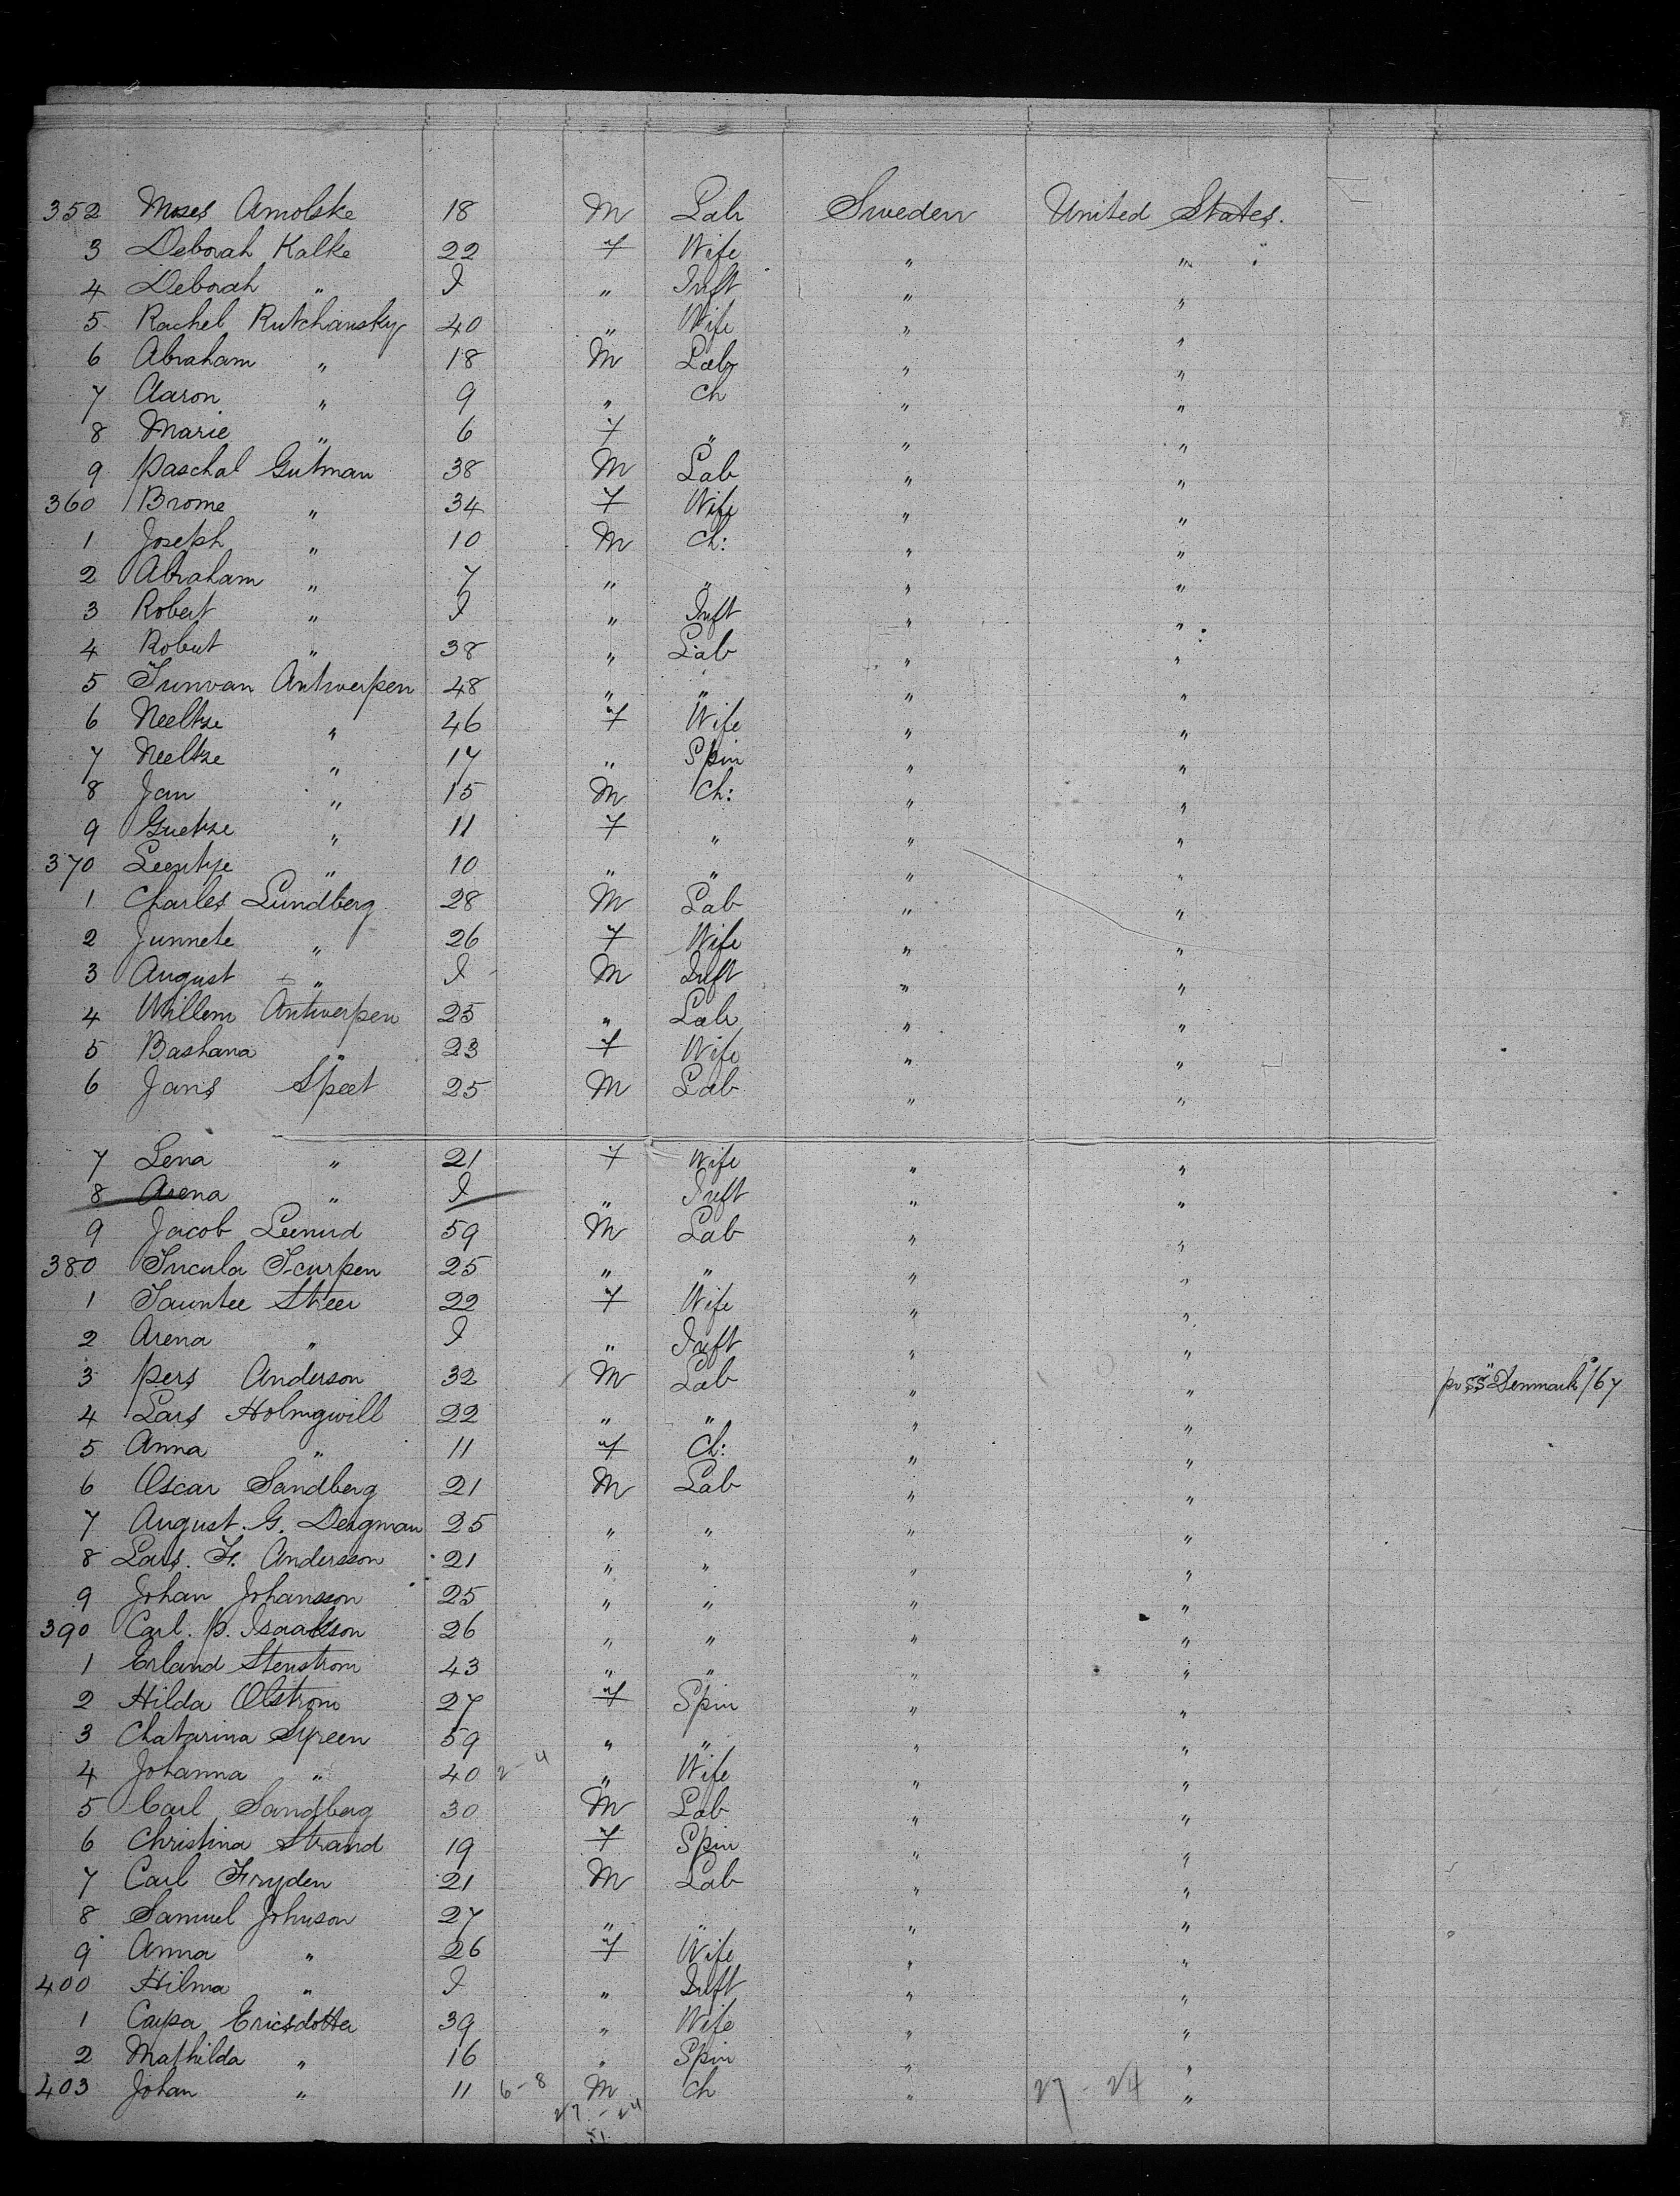 352 Moses Amolske 18 M Lab Sweden United States.
3 Deborah Kalke 22 F Wife " "
4 Deborah " I " Inft " "
5 Rachel Rutchansky 40 " Wife " "
6 Abraham " 18 M Lab " "
7 Aaron " 9 " Ch " "
8 Marie " 6 F " " "
9 Paschal Gutman 38 M Lab " "
360 Brome " 34 F Wife " "
1 Joseph " 10 M Ch: " "
2 Abraham " 7 " " " "
3 Robert " I " Inft " "
4 Robert " 38 " Lab " "
5 Antwerpen 48 " " " "
6 Neeltze " 46 F Wife " "
7 Neeltze " 17 " Spin " "
8 Jan " 15 M Ch: " "
9 Guetze " 11 F " " "
370 Leentye " 10 " " " "
1 Charles Lundberg 28 M Lab " "
2 Junnete " 26 F Wife " "
3 August " I M Inft " "
4 Willem Antwerpen 25 " Lab " "
5 Bashana " 23 F Wife " "
6 Jans Speet 25 M Lab " "
7 Lena " 21 F Wife " "
8 Arena " I " Inft " "
9 Jacob 59 M Lab " "
380 25 " " " "
1 Steer 22 F Wife " "
2 Arena " I " Inft " "
3 Pers Anderson 32 M Lab " " pr SS "Denmark" 167
4 Lars Holmgwill 22 " " " "
5 Anna " 11 F Ch: " "
6 Oscar Sandberg 21 M Lab " "
7 August. G. Dergman 25 " " " "
8 Lars. F. Andersson 21 " " " "
9 Johan Johansson 25 " " " "
390 Carl. P. Isaakson 26 " " " "
1 Erland Stenstrom 43 " " " "
2 Hilda Olstrom 27 F Spin " "
3 Chatarina Syreen 59 " " " "
4 Johanna " 40 2-4 " Wife " "
5 Carl Sandberg 30 M Lab " "
6 Christina Strand 19 F Spin " "
7 Carl Fryden 21 M Lab " "
8 Samuel Johnson 27 " " " "
9 Anna " 26 F Wife " "
400 Hilma " I " Inft " "
1 Cajsa Ericsdotter 39 " Wife " "
2 Mathilda " 16 " Spin " "
403 Johan " 11 6-8 M Ch " 27 - 24 "
27 - 24
51